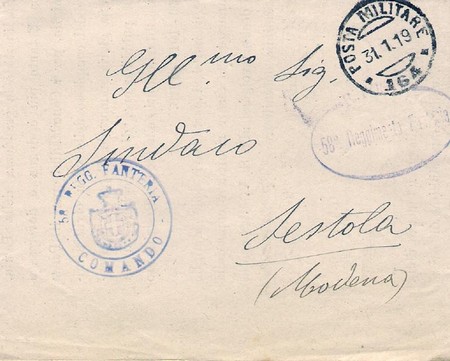 POSTA MILITARE
31.1.19
164
Ill.mo Sig.
Sindaco
58º Reggimento
REGG. FANTERIA
COMANDO
Sestola
(Modena)